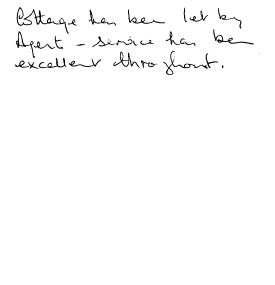 Cottage has been let by
Agent - service has been
excellent throughout.